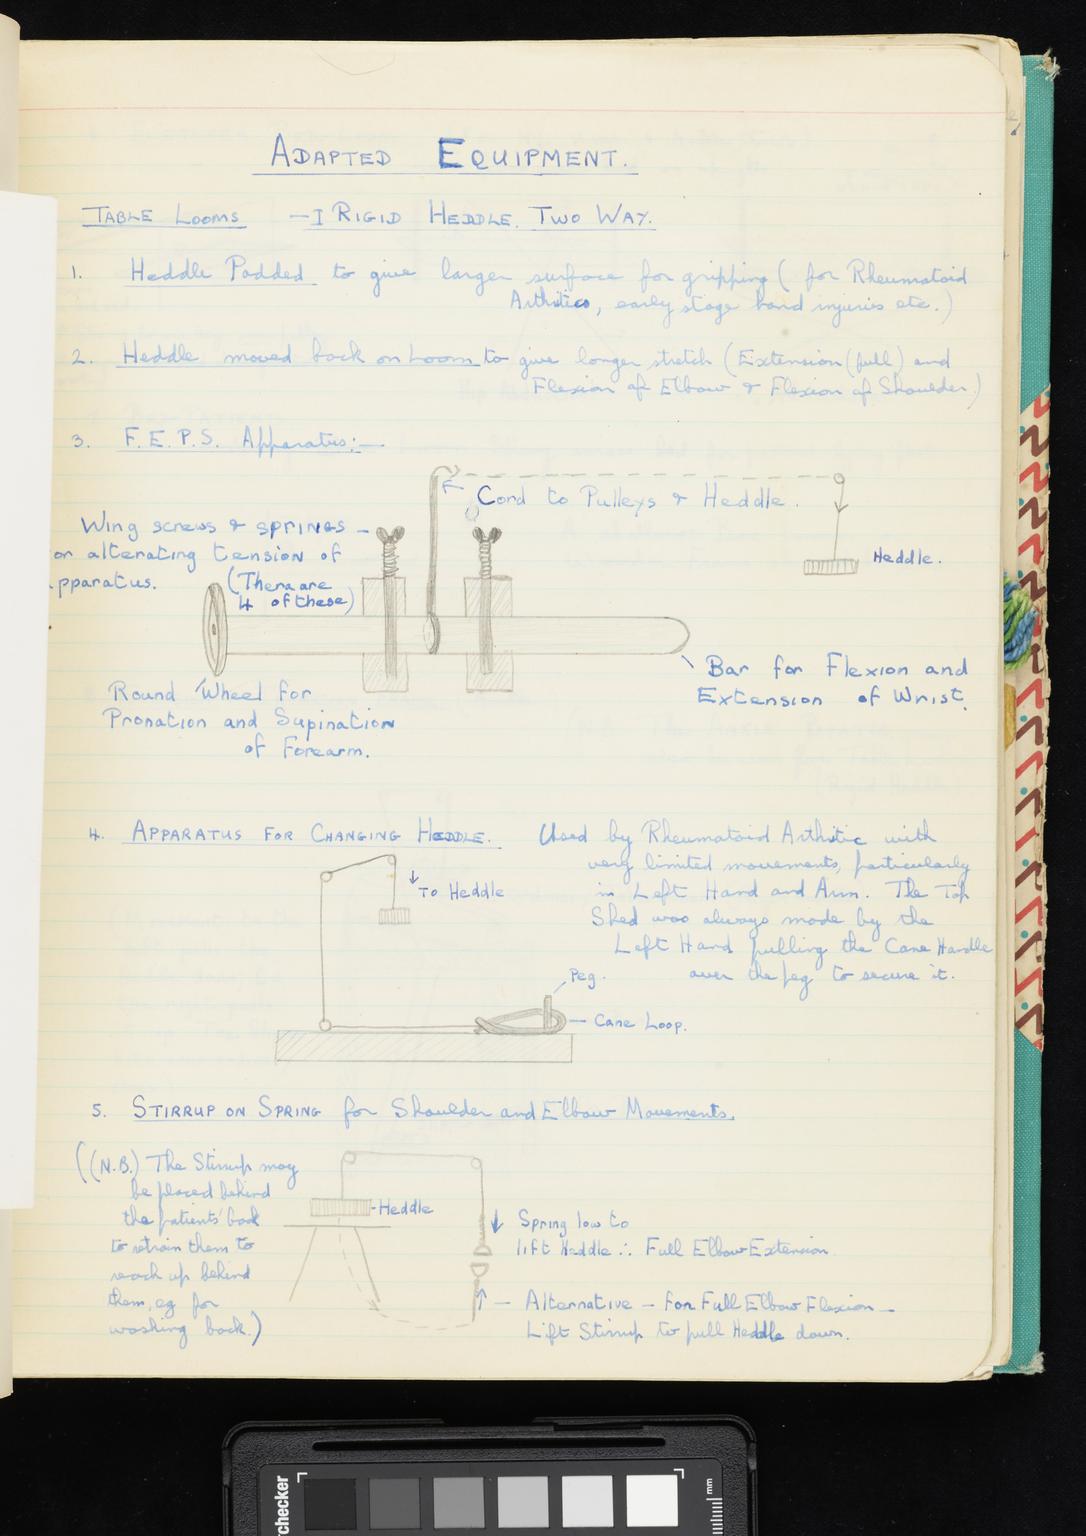 ADAPTED EQUIPMENT.
TABLE LOOMS — I RIGID HEDDLE. TWO WAY.
1. Heddle Padded to give larger surface for gripping ( for Rheumatoid
Arthitics, early stage hand injuries etc.)
2. Heddle moved back on Loom to give longer stretch (Extension (full) and
Flexion of Elbow & Flexion of Shoulder)
3. F.E.P.S. Apparatus:—
Cord to Pulleys & Heddle.
Heddle.
Wing screws & SPRINGS —
on alterating tension of
pparatus. (There are
4 of these)
Bar for Flexion and
Extension of Wrist.
Round Wheel for
Pronation and Supination
of Forearm.
4. APPARATUS FOR CHANGING HEDDLE. Used by Rheumatoid Arthitic with
very limited movements, particularly
in Left Hand and Arm. The Top
Shed was always made by the
Left Hand pulling the Cane Handle
over the peg to secure it.
↓ To Heddle
Peg.
— Cane Loop.
5. STIRRUP ON SPRING for Shoulder and Elbow Movements.
((N.B.) The Stirrup may
be placed behind
the patients' back
to retrain them to
reach up behind
them, eg for
washing back.)
- Heddle
↓ Spring low to
lift Heddle ∴ Full Elbow Extension
↑ — Alternative — for Full Elbow Flexion —
Lift Stirrup to pull Heddle down.
checker
mm